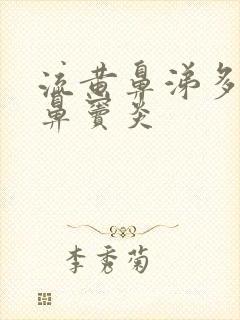 流黄鼻涕多
鼻窦炎
李秀菊